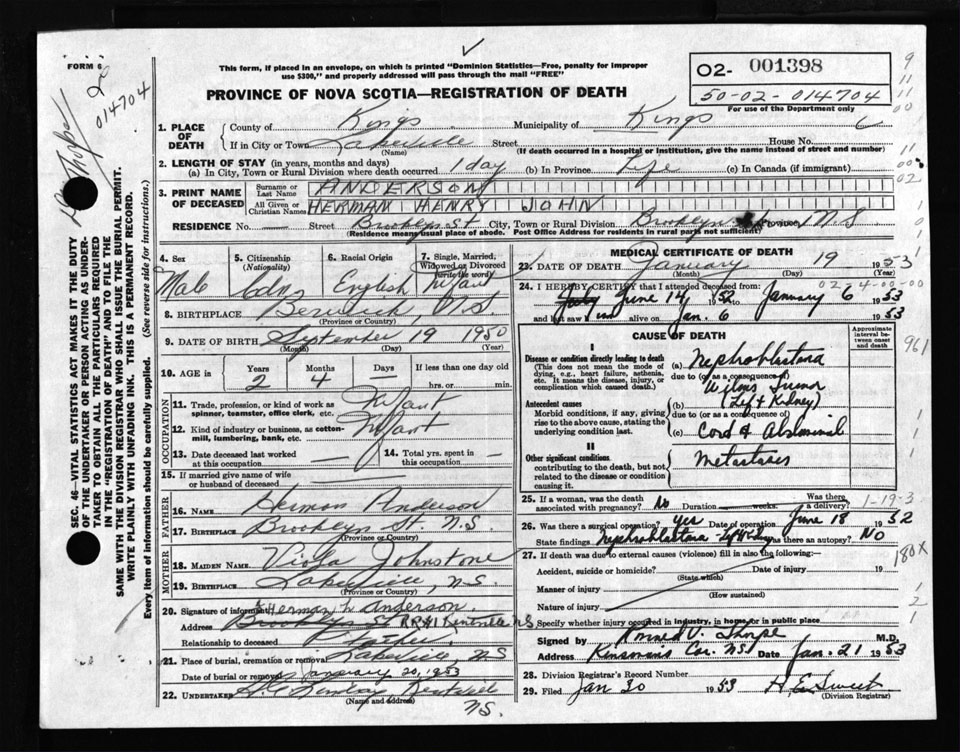 FORM 6
This form, if placed in an envelope, on which is printed "Dominion Statistics—Free, penalty for improper
use $300," and properly addressed will pass through the mail "FREE"
PROVINCE OF NOVA SCOTIA—REGISTRATION OF DEATH
02- 001398
50-02-014704
For use of the Department only
014704
SEC. 46—VITAL STATISTICS ACT MAKES IT THE DUTY
OF THE UNDERTAKER OR PERSON ACTING AS UNDER-
TAKER TO OBTAIN ALL THE PARTICULARS REQUIRED
IN THE "REGISTRATION OF DEATH" AND TO FILE THE
SAME WITH THE DIVISION REGISTRAR WHO SHALL ISSUE THE BURIAL PERMIT.
WRITE PLAINLY WITH UNFADING INK. THIS IS A PERMANENT RECORD.
Every item of information should be carefully supplied. (See reverse side for instructions.)
1. PLACE OF DEATH County of Kings Municipality of Kings
If in City or Town Lakeview Street House No.
(Name) (If death occurred in a hospital or institution, give the name instead of street and number)
2. LENGTH OF STAY (in years, months and days)
(a) In City, Town or Rural Division where death occurred 1 day (b) In Province Life (c) In Canada (if immigrant)
3. PRINT NAME OF DECEASED Surname or Last Name ANDERSON
All Given or Christian Names HERMAN HENRY JOHN
RESIDENCE No. — Street Brooklyn St City, Town or Rural Division Brooklyn St Province N.S
(Residence means usual place of abode. Post Office Address for residents in rural parts not sufficient)
4. Sex Male
5. Citizenship (Nationality) Cdn
6. Racial Origin English
7. Single, Married, Widowed or Divorced (write the word) Infant
8. BIRTHPLACE Berwick N.S.
(Province or Country)
9. DATE OF BIRTH September 19 1950
(Month) (Day) (Year)
10. AGE in Years 2 Months 4 Days — If less than one day hrs. or min.
OCCUPATION
11. Trade, profession, or kind of work as spinner, teamster, office clerk, etc. Infant
12. Kind of industry or business, as cotton-mill, lumbering, bank, etc. Infant
13. Date deceased last worked at this occupation —
14. Total yrs. spent in this occupation —
15. If married give name of wife or husband of deceased —
FATHER
16. Name Herman Anderson
17. Birthplace Brooklyn St. N.S.
(Province or Country)
MOTHER
18. MAIDEN NAME Viola Johnstone
19. BIRTHPLACE Lakeview, N.S.
(Province or Country)
20. Signature of informant Herman Anderson.
Address Brooklyn St RR#1 Kentville N.S
Relationship to deceased Father
21. Place of burial, cremation or removal Lakeview NS
Date of burial or removal January 20, 1953
22. UNDERTAKER Kentville NS.
(Name and address)
MEDICAL CERTIFICATE OF DEATH
23. DATE OF DEATH January 19 1953
(Month) (Day) (Year)
02-4-00-00
24. I HEREBY CERTIFY that I attended deceased from:
July June 14 1952 to January 6 1953
and last saw him alive on Jan. 6 1953
CAUSE OF DEATH
Approximate interval between onset and death
I
Disease or condition directly leading to death
(This does not mean the mode of dying, e.g., heart failure, asthenia, etc. It means the disease, injury, or complication which caused death.)
(a) Nephroblastoma
due to (or as a consequence of)
Wilms Tumor
Antecedent causes
Morbid conditions, if any, giving rise to the above cause, stating the underlying condition last.
(b) (Left Kidney)
due to (or as a consequence of)
(c) Cord & Abdominal
II
Other significant conditions
contributing to the death, but not related to the disease or condition causing it.
Metastases
961
25. If a woman, was the death associated with pregnancy? No Duration — weeks. Was there a delivery?
1-19-3
26. Was there a surgical operation? yes Date of operation June 18 1952
State findings Nephroblastoma - Left Kidney Was there an autopsy? No
180X
27. If death was due to external causes (violence) fill in also the following:—
Accident, suicide or homicide? Date of injury 19
(State which)
Manner of injury
(How sustained)
Nature of injury
Specify whether injury occurred in industry, in home, or in public place
Signed by V. Thorpe M.D.
Address Date Jan. 21 1953
28. Division Registrar's Record Number
29. Filed Jan 30 1953 H.E. Sweet
(Division Registrar)